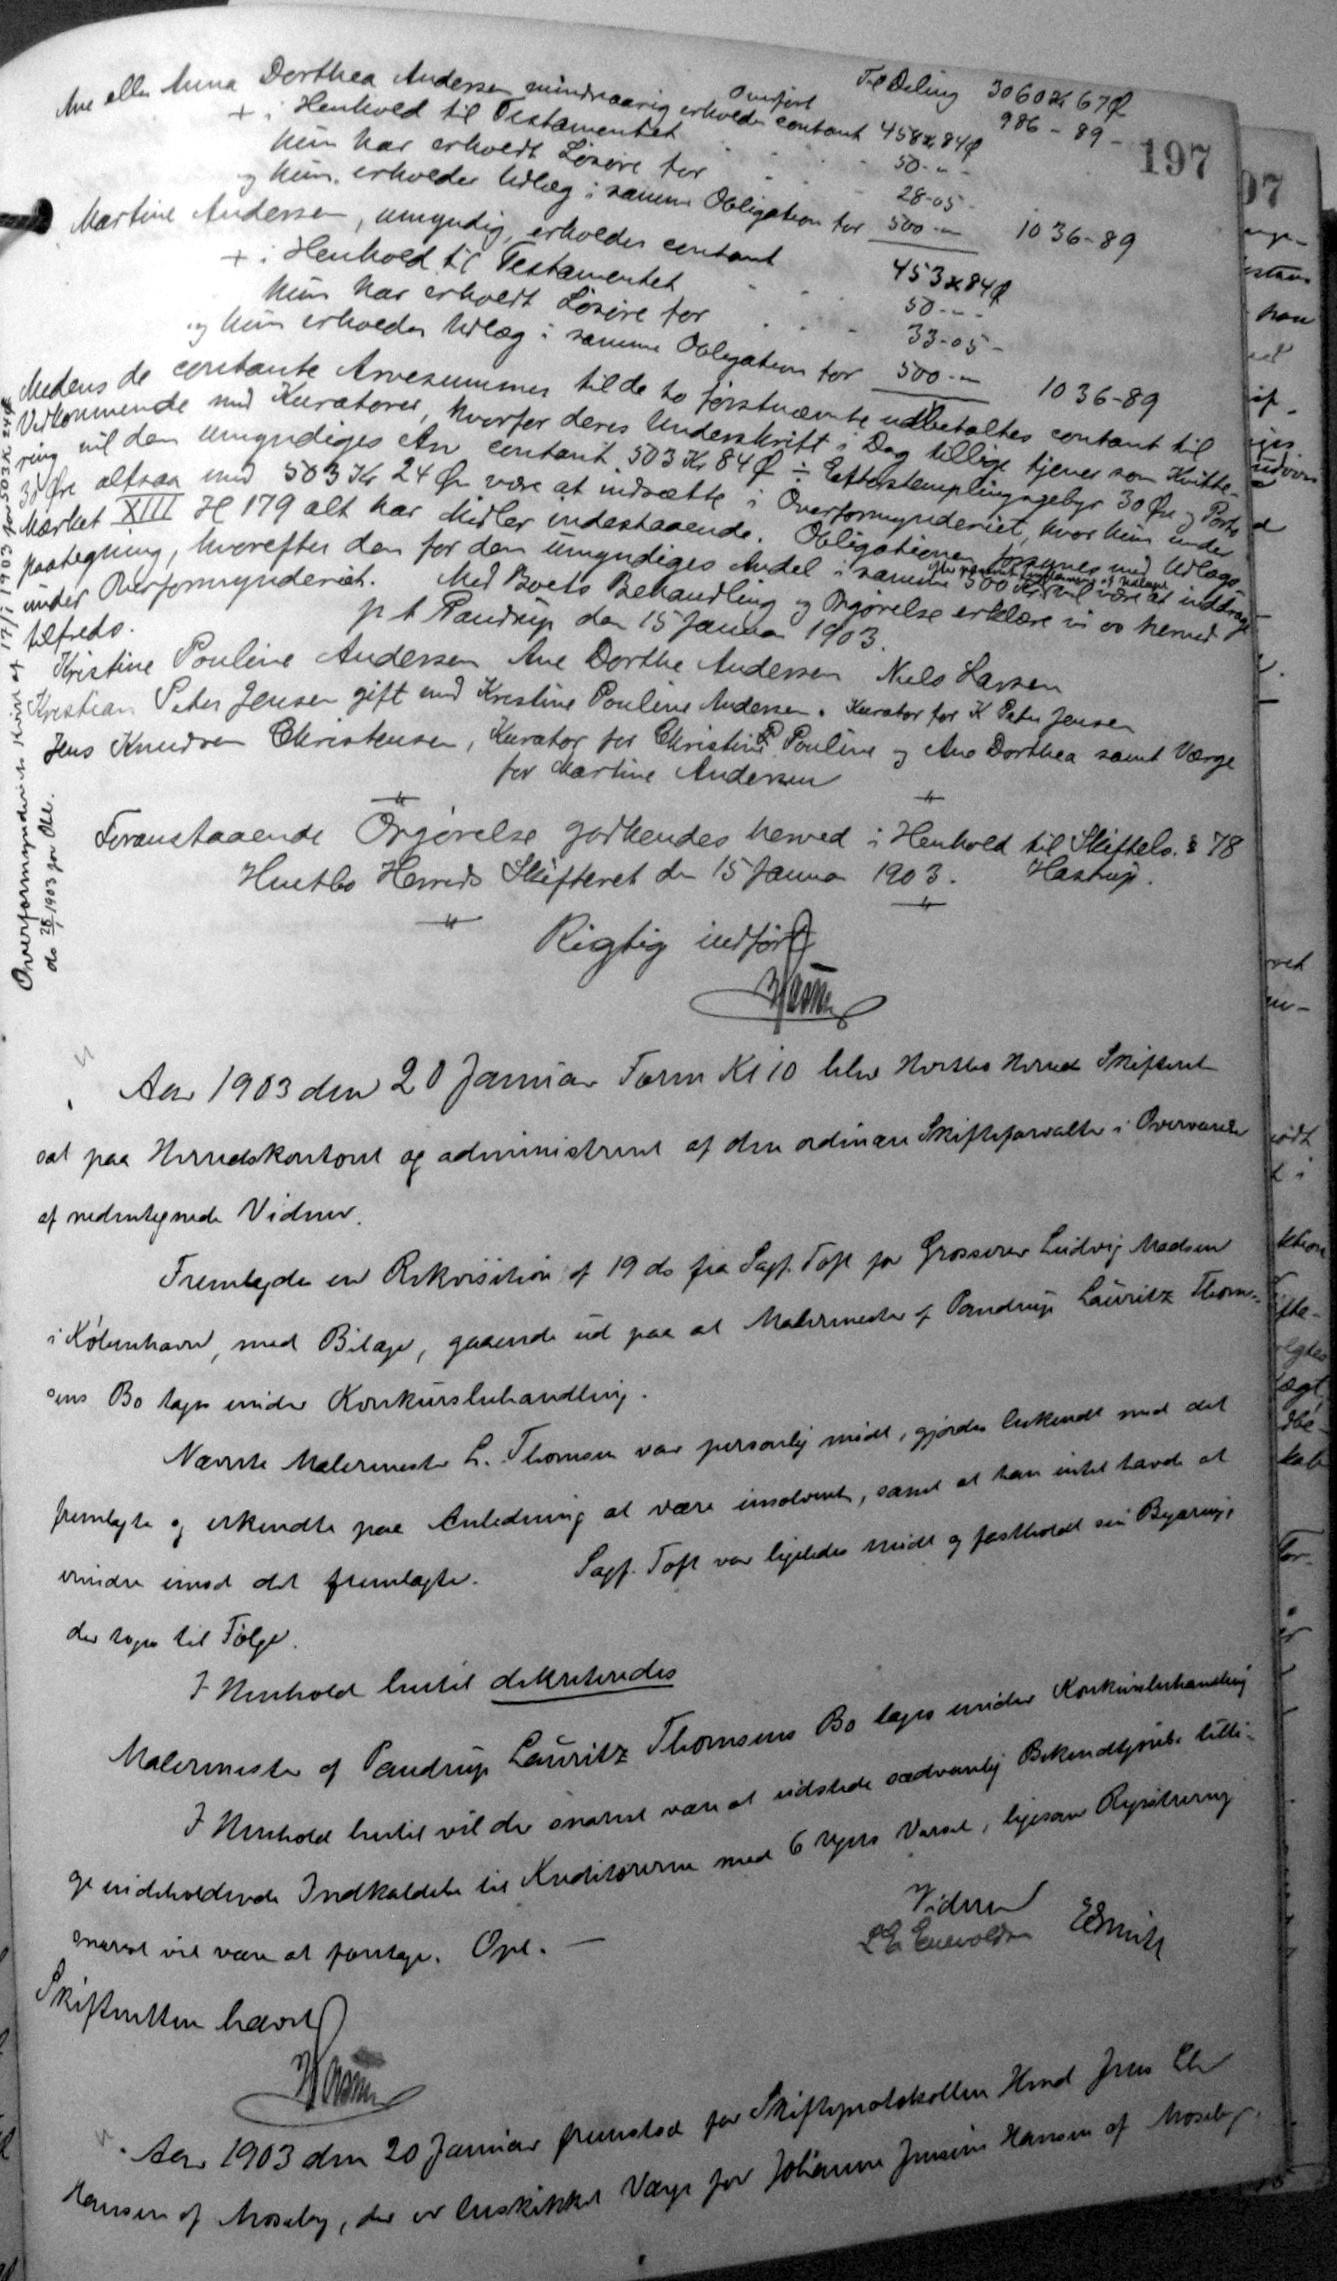 197
Til Deling 3060 Kr 67 Ø
Overført 986 - 89 -
Ane eller Anna Dorthea Andersen mindreaarig erholder contant 458 Kr 84 Ø
+ i Henhold til Testamentet 50 - -
hun har erholdt Løsøre for 28 - 05 -
og hun erholder Udlæg i samme Obligation for 500 - - 1036 - 89
Martine Andersen, umyndig, erholder contant 453 Kr 84 Ø
+ i Henhold til Testamentet 50 - -
hun har erholdt Løsøre for 33 - 05 -
og hun erholder Udlæg i samme Obligation for 500 - - 1036 - 89
Medens de contante Arvesummer til de to førstnævnte udbetaltes contant til
Vedkommende med Kuratorer, hvorfor deres Underskrift i Dag tillige tjener som Kvitte-
ring vil den umyndiges Arv contant 503 Kr 84 Ø ÷ Efterstemplingsgebyr 30 Øre og Porto
30 Øre altsaa med 503 Kr 24 Ør være at indsætte i Overformynderiet, hvor hun under
Mærket XIII H 179 alt har Midler indestaaende. Obligationen forsynes med Udlægs-
paategning, hvorefter den for den umyndiges Andel i samme 500 Kr vil være at inddrage
under Overformynderiet. Med Boets Behandling og Opgørelse erklære vi os herved
tilfreds. p t Pandrup den 15 Januar 1903.
Kristine Pouline Andersen Ane Dorthe Andersen Niels Larsen
Kristian Peter Jensen gift med Kristine Pouline Andersen. Kurator for K Peter Jensen
Jens Knudsen Christensen, Kurator for Christine Pouline og Ane Dorthea samt Værge
for Martine Andersen
Overformynderiets Kvit af 17/1 1903 for 503 K 24 Ø
do 28/1 1903 for Obl.
Foranstaaende Opgørelse godkendes herved i Henhold til Skiftelo. § 78
Hvetbo Herreds Skifteret den 15 Januar 1903. Hastrup.
Rigtig indført
Aar 1903 den 20 Januar Form Kl 10 blev Hvetbo Herreds Skifteret
sat paa Herredskontoret og administreret af den ordinære Skifteforvalter i Overværelse
af nedentegnede Vidner.
Fremlagdes en Rekvisition af 19 ds fra Sagf. Toft for Grosserer Ludvig Madsen
i København, med Bilage, gaaende ud paa at Malermester af Pandrup Lauritz Thom-
sens Bo tages under Konkursbehandling.
Nævnte Malermester L. Thomsen var personlig mødt, gjordes bekendt med det
fremlagte og erkendte paa Anledning at være insolvent, samt at han intet havde at
erindre imod det fremlagte. Sagf. Toft var ligeledes mødt og fastholdt sin Begæring,
der toges til Følge.
I Henhold hertil dekreteredes
Malermester af Pandrup Lauritz Thomsens Bo tages under Konkursbehandling
I Henhold hertil vil der snarest være at udstede sædvanlig Bekendtgørelse tilli-
ge indeholdende Indkaldelse til Kreditorerne med 6 Ugers Varsel, ligesom Registrering
snarest vil være at foretage. Opl. —
Vidner
L E Enevoldsen ESmith
Skifteretten hævet
Aar 1903 den 20 Januar fremstod for Skifteprotokollen Hmd Jens Chr
Hansen af Moseby, der er beskikket Værge for Johanne Jensine Hansen af Moseby.